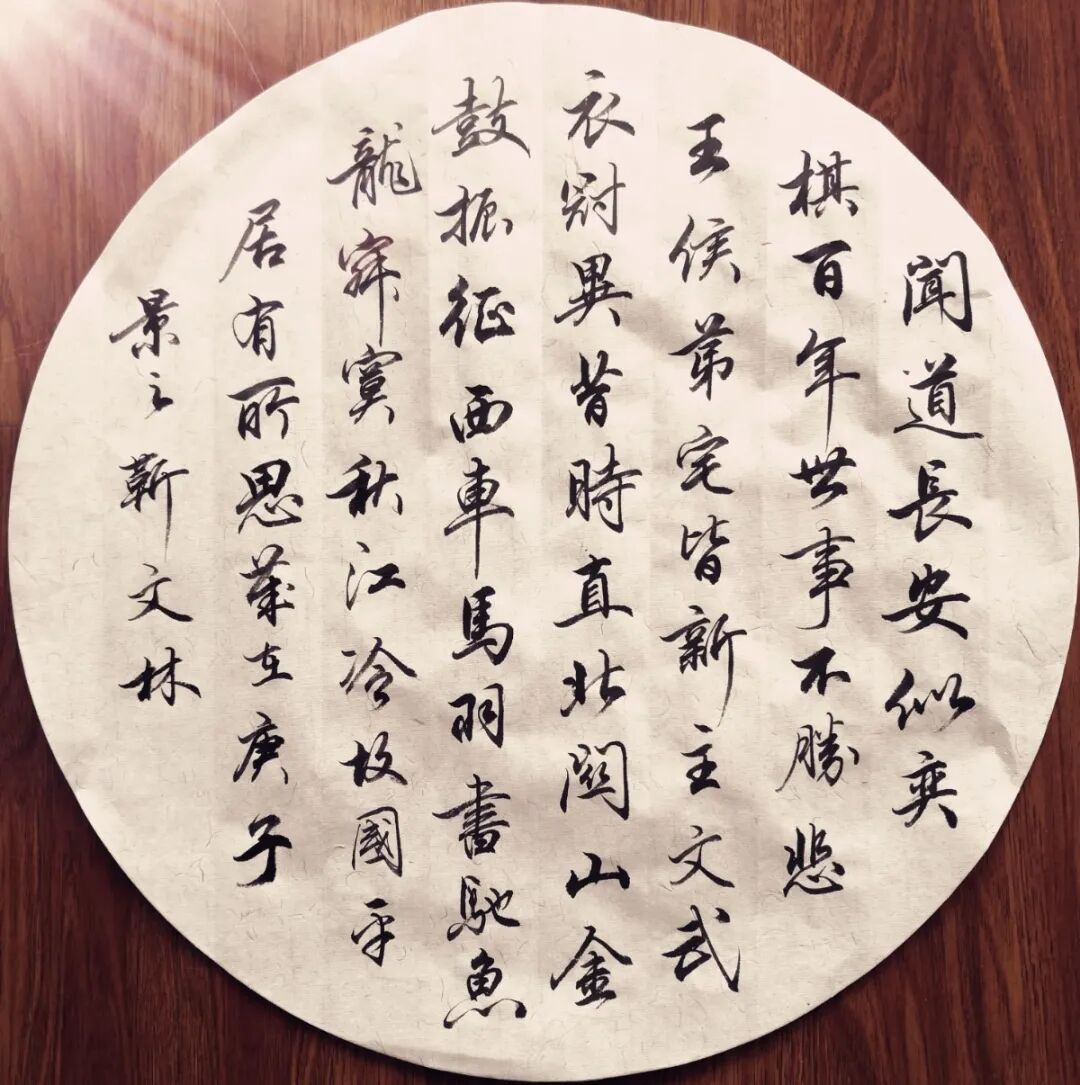 聞道長安似奕
棋百年世事不勝悲
王侯第宅皆新主文武
衣冠異昔時直北關山金
鼓振征西車馬羽書馳魚
龍寂寞秋江冷故國平
居有所思歲在庚子
景之靳文林